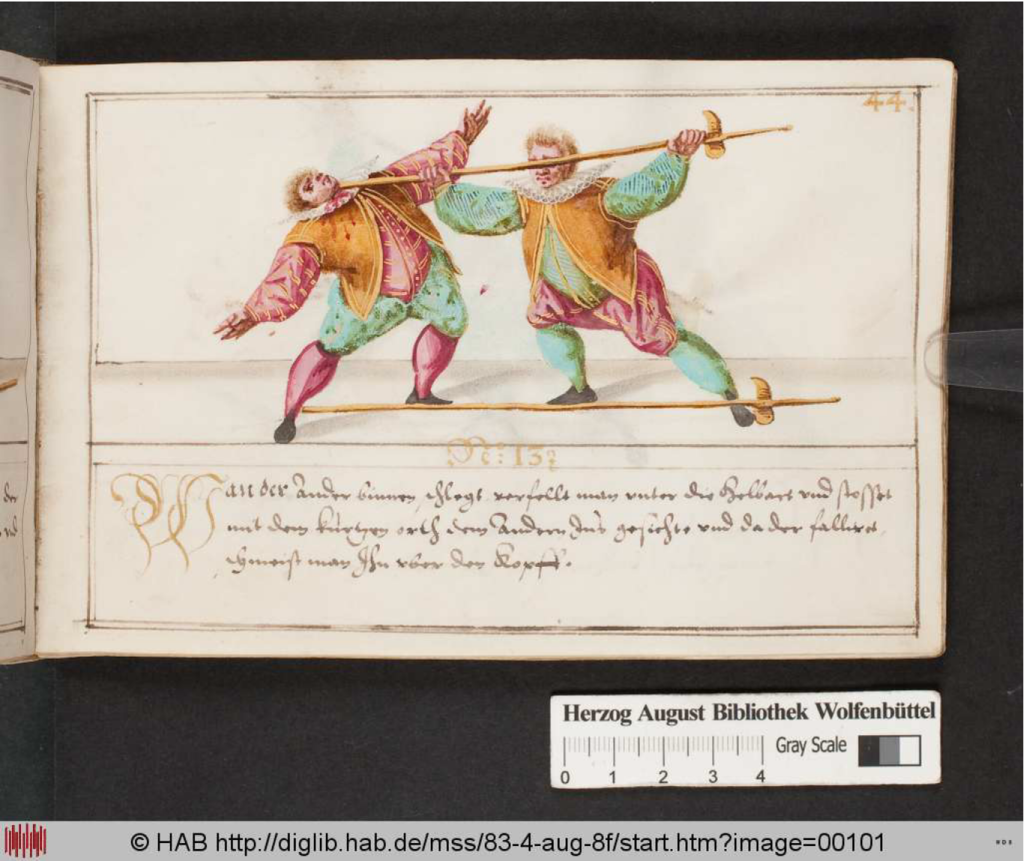 44
No: 13
Wan der Ander binnen schlegt verfellt man unter die Helbart und stosset
mit dem kurtzen orth dem Andern ins gesichte und da der falliret,
schmeist man Ihn uber den Kopff.
der
und
Herzog August Bibliothek Wolfenbüttel
Gray Scale
0 1 2 3 4
© HAB http://diglib.hab.de/mss/83-4-aug-8f/start.htm?image=00101